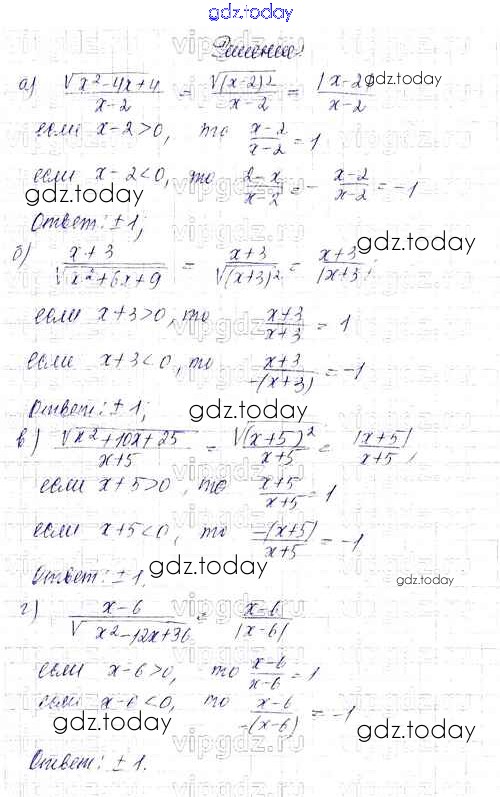 gdz.today
Решение:
а) √(x²-4x+4) / (x-2) = √((x-2)²) / (x-2) = |x-2| / (x-2)
gdz.today
если x-2>0, то (x-2)/(x-2) = 1
если x-2<0, то (2-x)/(x-2) = -(x-2)/(x-2) = -1
gdz.today gdz.today
Ответ: ±1;
gdz.today
б) (x+3) / √(x²+6x+9) = (x+3) / √((x+3)²) = (x+3) / |x+3|;
если x+3>0, то (x+3)/(x+3) = 1
если x+3<0, то (x+3)/(-(x+3)) = -1
Ответ: ±1;
gdz.today
в) √(x²+10x+25) / (x+5) = √((x+5)²) / (x+5) = |x+5| / (x+5),
gdz.today
если x+5>0, то (x+5)/(x+5) = 1
если x+5<0, то (-(x+5))/(x+5) = -1
gdz.today
Ответ: ±1,
gdz.today
г) (x-6) / √(x²-12x+36) = (x-6) / |x-6|
gdz.today
если x-6>0, то (x-6)/(x-6) = 1
если x-6<0, то (x-6)/(-(x-6)) = -1
gdz.today gdz.today
Ответ: ±1.
vipgdz.ru